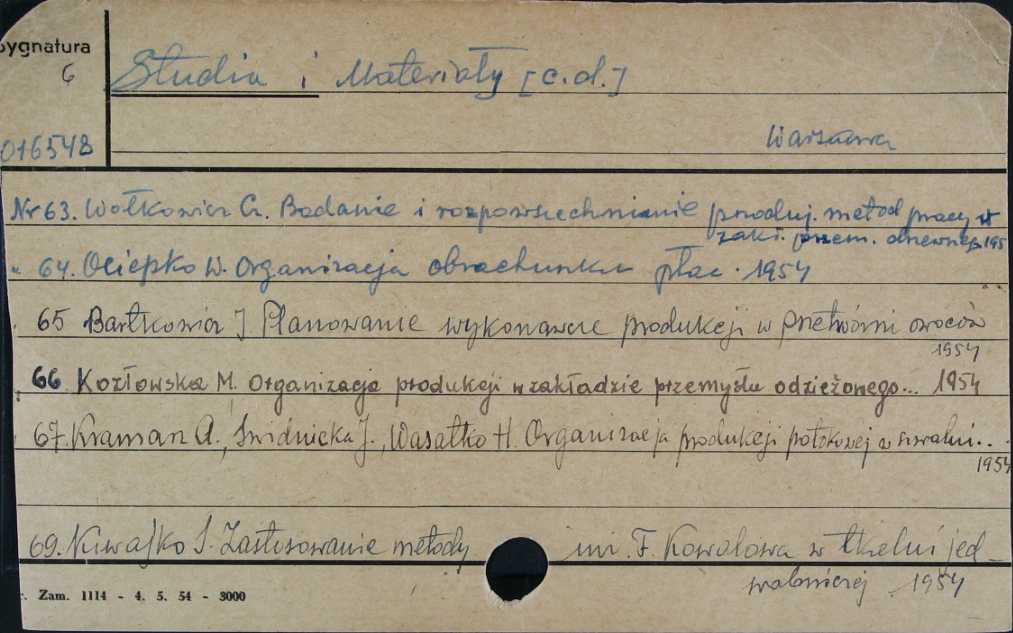 Sygnatura
G
Studia i Materiały [c.d.]
016548
Warszawa
Nr 63. Wołkowicz Cz. Badanie i rozpowszechnianie produj. metod pracy w
zakł. przem. drzewneg. 195
" 64. Ociepko W. Organizacja obrachunku płac. 1954
65 Bartkowicz J Planowanie wykonawcze produkcji w przetwórni owoców
1954
66. Kozłowska M. Organizacja produkcji w zakładzie przemysłu odzieżonego... 1954
67. Kraman A., Świdnicka J., Wasatko H. Organizacja produkcji potokowej w szwalni...
1954
69. Kuwajko S. Zastosowanie metody inż. F. Kowalowa w tkalni jed-
wabniczej 1954
Zam. 1114 - 4. 5. 54 - 3000